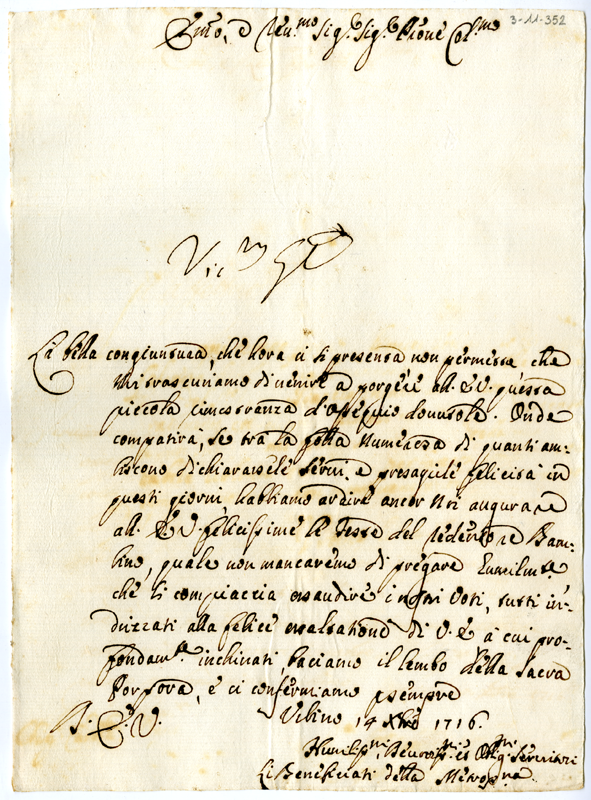 3-11-352
Emo, e Reu.mo Sig.e Sig.e Prone Col.mo
La bella congiuntura, che hora ci si presenta non permette che
Noi trascuriamo di uenire a porgere all' E.V. questa
piccola rimostranza d'ossequio douutole. Onde
compatirà, se trà la folla numerosa di quanti am-
biscono dichiararsele serui, e presagile felicità in
questi giorni habbiamo ardire ancor Noi augurare
all' E.V. felicissime le Feste del Redentore Bam-
bino, quale non mancaremo di pregare humilm.te
che si compiaccia essaudire i nostri Voti, tutti in-
drizzati alla felice essaltatione di V.E. à cui pro-
fondam.te inchinati, baciamo il lembo della Sacra
Porpora, e ci confermiamo p sempre
D. E. V. Vrbino 14 Xbre 1716.
Humiliss.mi Deuotiss.mi et Oblig.mi Seruitori
Li Beneficiati della Metrop.na